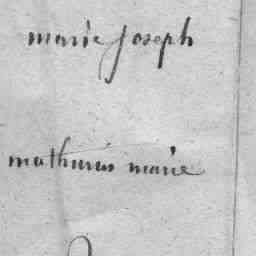 marie joseph
mathurin marie